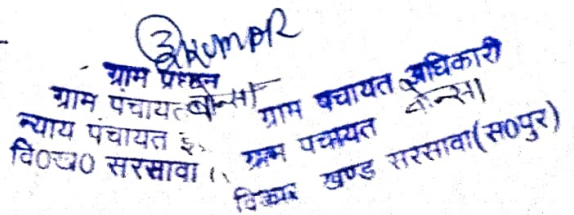 KUMAR
ग्राम प्रधान
ग्राम पंचायत बोन्सा
न्याय पंचायत
वि०ख० सरसावा
ग्राम पंचायत अधिकारी
ग्राम पंचायत बोन्सा
विकास खण्ड सरसावा (स०पुर)